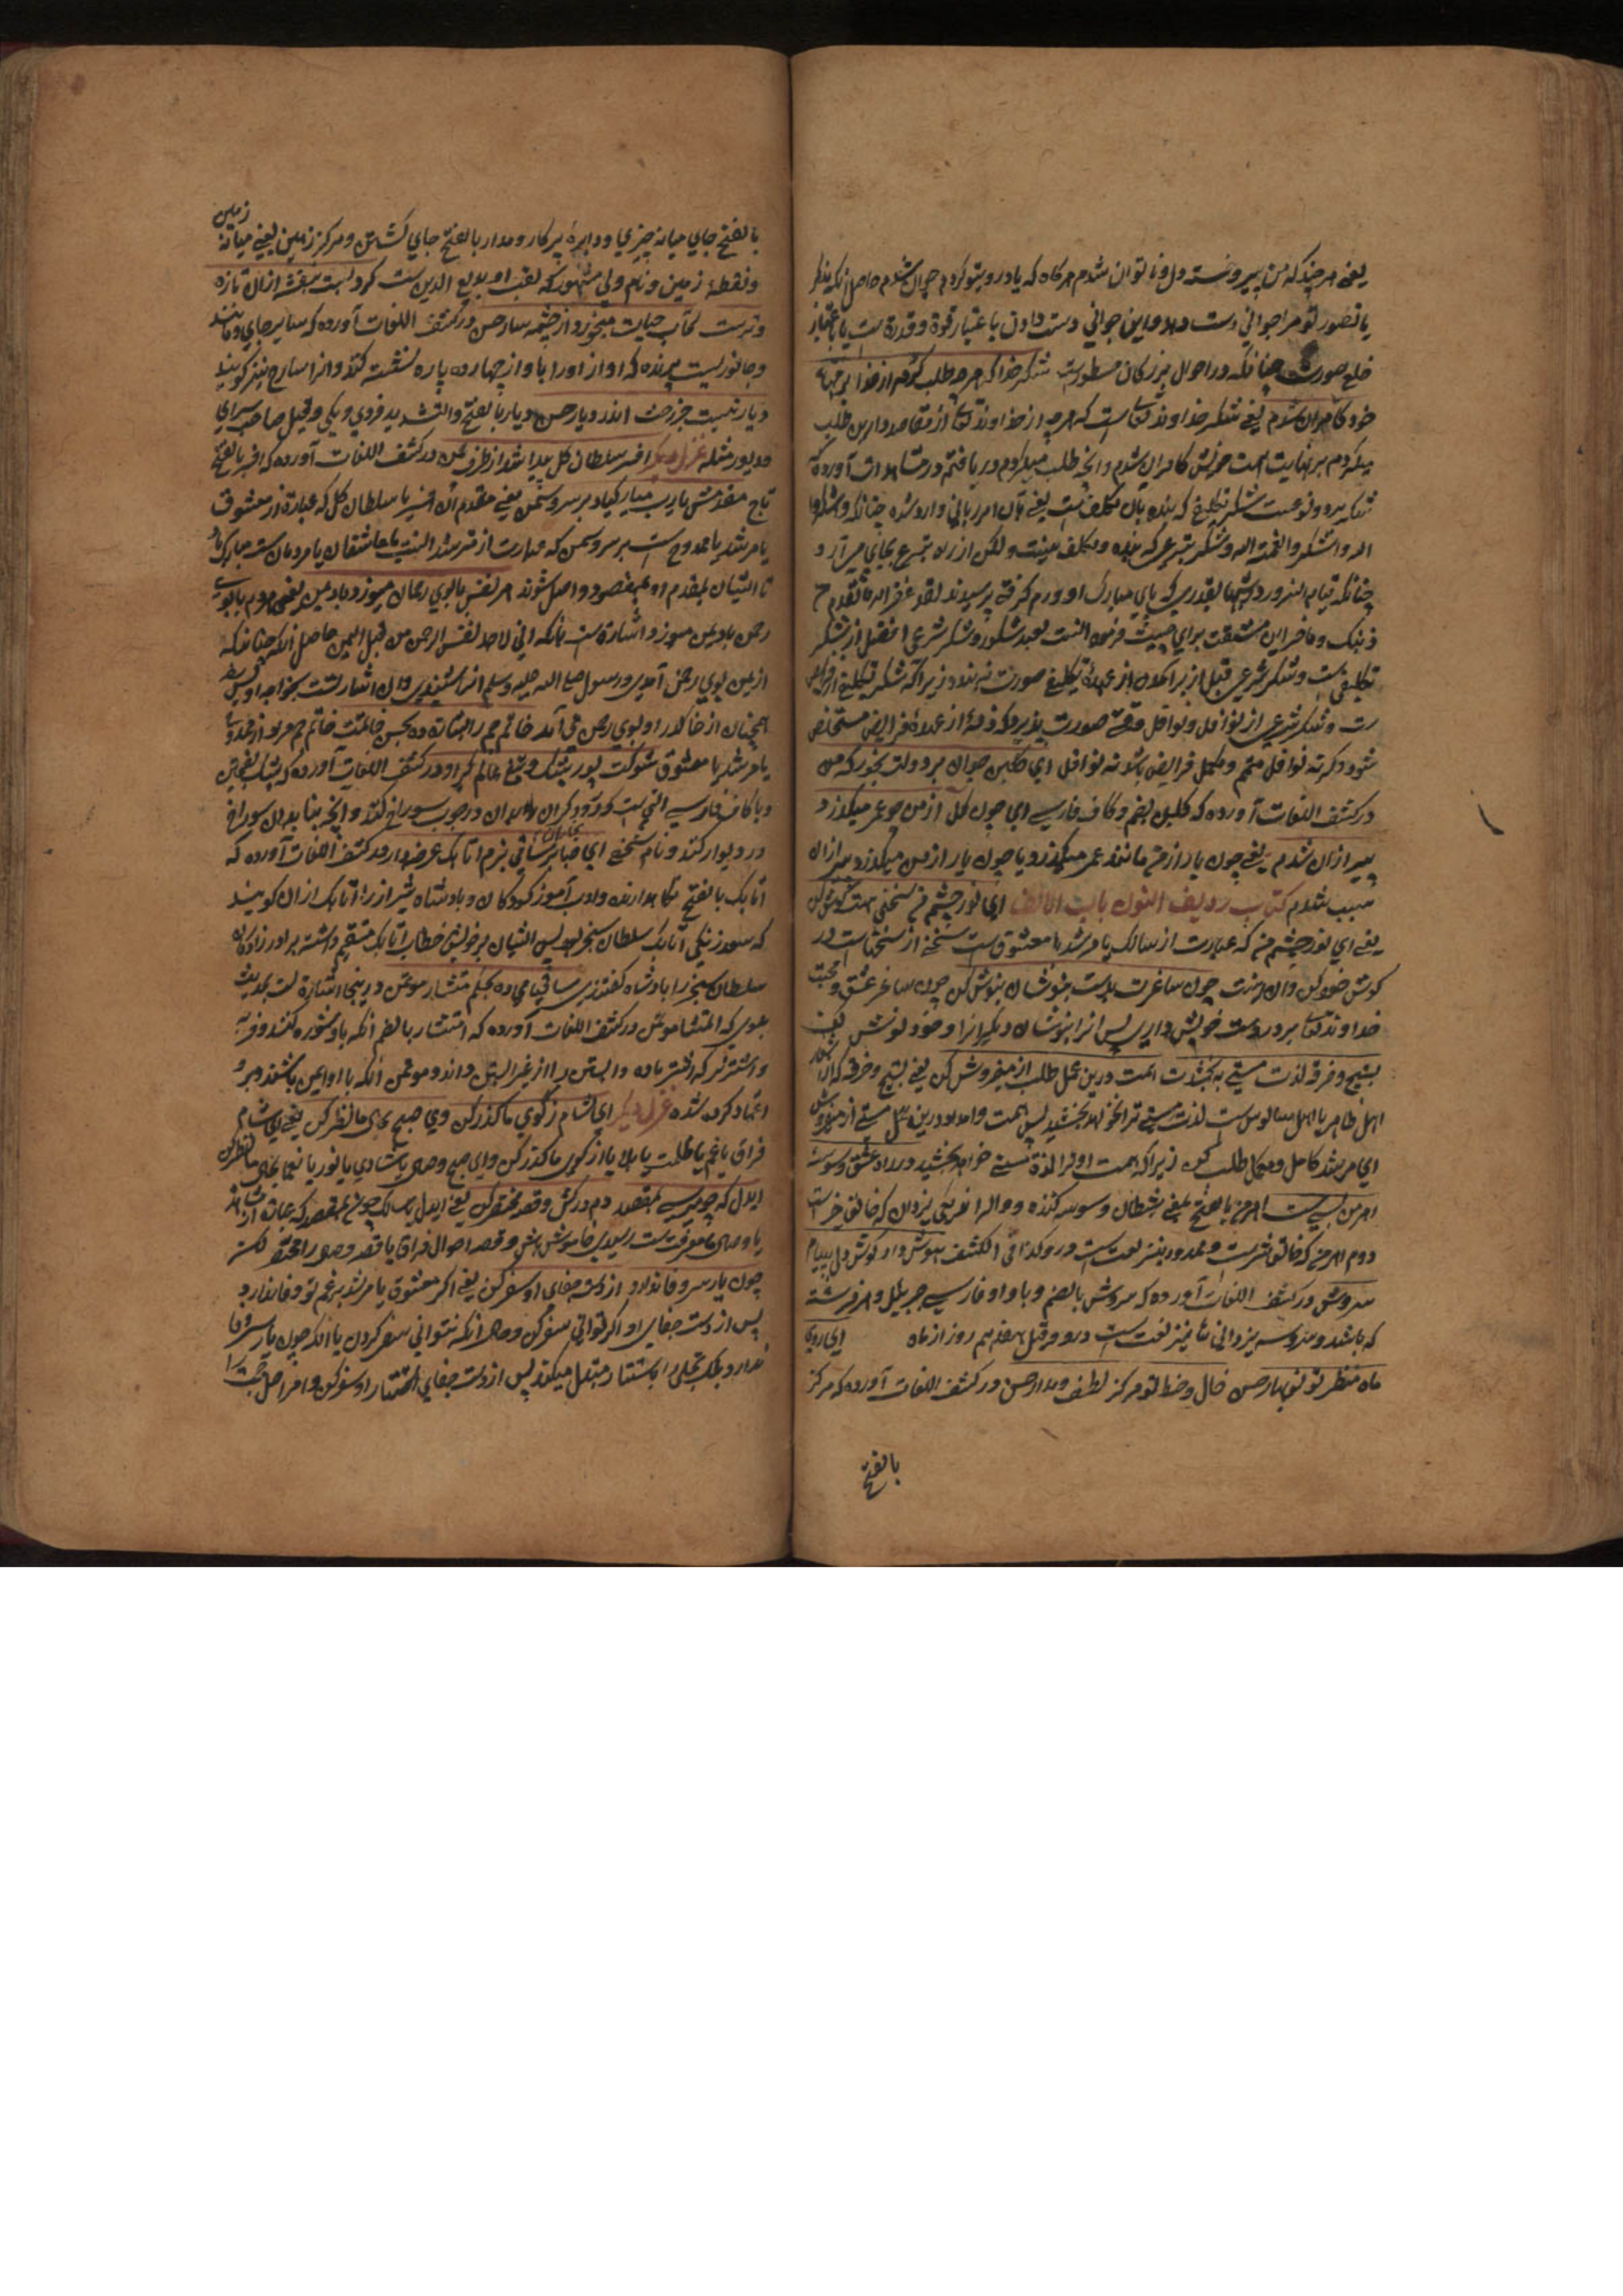 یعنی هر چند که من پیر و خسته دل و ناتوان شدم هرگاه که یاد روی تو کردم جوان شدم حاصل آنکه بذکر
یا تصور تو مرا جوانی دست دهد و این جوانی دست دادن باعتبار قوة و قدرة است یا باعتبار
خلع صورت چنانکه در احوال بزرگان مسطورست شکر خدا که هرچه طلب کردم از خدا بر منتهای
خود کامران شدم یعنی شکر خداوند تعالی است که هرچه از خداوند تعالی از مقاصد دارین طلب
میکردم بر نهایت همت خویش کامران شدم و آنچه طلب میکردم در یافتم در مشاهدات آورده که
شکر بر دو نوعست شکر تکلیفی که بنده بآن مکلف است یعنی بآن امر ربانی وارد شده چنانکه واشکروا
الله واشکر والنعمة الله و شکر تبرعی که بنده مکلف نیست ولکن از راه تبرع بجای می آرد
چنانکه قیام آنسرور در شبها بقدری که پای مبارک او ورم گرفتی پرسیدند لقد غفر الله ما تقدم من
ذنبک وما تأخر این مشقت برای چیست فرمود الست بعبد شکور و شکر شرعی افضل از شکر
تکلیفی ست و شکر شرعی قبل از برآمدن از عهدهٔ تکلیفی صورت نه بندد زیرا که شکر تکلیفی از فرایض
ست و شکر شرعی از نوافل و نوافل وقتی صورت پذیرد که ذمهٔ از عهدهٔ فرایض مستخلص
شود و گرنه نوافل متمم و مکمل فرایض باشد نه نوافل ای گلبن جوان بر دولت بخور که من
در کشف اللغات آورده که گلبن بضم و کاف فارسی ای چون گل از من چو عمر میگذرد
پیر ازان شدم یعنی چون یار از من مانند عمر میگذرد و یا چون یار از من میگذرد پیر ازان
سبب شدم کتاب ردیف النون باب الالف ای نور چشم من سخنی هست گوش کن
یعنی ای نور چشم من که عبارت از سالک یا مرشد یا معشوق است سخنی از سخنها است در
گوش خود کن و آن اینست چون ساغرت پرست بنوشان و نوش کن چون ساغر عشق و محبت
خداوند تعالی بر دست خویش داری پس آنرا بنوشان دیگرانرا و خود نوش کن
تسبیح و خرقه لذت مستی نه بخشدت همت درین عمل طلب از میفروش کن یعنی تسبیح و خرقه که آن شعار
اهل ظاهر یا اهل سالوس ست لذت مستی ترا نخواهد بخشید پس همت و امداد درین عمل مستی از میفروش
ای مرشد کامل و مکمل طلب کن زیرا که همت او ترا لذة مستی خواهد بخشید در راه عشق وسوسهٔ
اهرمن بسی ست اهرمن بالفتح یعنی شیطان وسوسه کننده
دوم اهرمن که خالق شرست و ممدود نیز لغتست درو کذا فی الکشف هوش دار و گوش دل به پیام
سروش در کشف اللغات آورده که سروش بالضم و با واو فارسی جبریل و هر فرشته
که باشد و سروش یزدانی نیز لغت است درو و قیل هفدهم روز از ماه ای روی
ماه منظر تو نوبهار حسن خال و خط تو مرکز لطف و مدار حسن در کشف اللغات آورده که مرکز
بالفتح
زمین
بالفتح جای میانه چیزی و دایرهٔ پرکار و مدار بالفتح جای گشتن و مرکز زمین یعنی میانهٔ
و نقطهٔ زمین و نام ولی مشهور که لقب او بدیع الدین ست گرد لبت بنفشه ازان تازه
و ترست کآب حیات میخورد از چشمه سار حسن در کشف اللغات آورده که سایر جای و مانند
و جانوریست پرنده که آواز او را با آواز چهارده پاره نسبت کنند و آنرا سارج نیز گویند
دیار نیست جز رخت اندر دیار حسن دیار بالفتح والتشدید فردی و یکی و قیل صاحب سرای
و دیور مثله غزل دیگر افسر سلطان گل پیدا شد از طرف چمن در کشف اللغات آورده که افسر بالفتح
تاج مقدمش یارب مبارکباد بر سرو و سمن یعنی مقدم آن افسر یا سلطان گل که عبارة از معشوق
یا مرشد یا ممدوح است بر سرو و سمن که عبارت از مسترشد النسب یا عاشقان یا مردمان ست مبارک باد
تا ایشان بمقدم او بمقصود واصل شوند هر نفس با بوی رحمان میوزد باد یمن یعنی هر دم با بوی
رحمن باد یمن میوزد و اشارة ست بآنکه انی لاجد نفس الرحمن من قبل الیمن حاصل آنکه چنانکه
از یمن بوی رحمن آمدی و رسول صلی الله علیه وسلم آنرا شنیدی و آن اشارتست بخواجه اویس
همچنان از خاک در او بوی رحمن می آمد خاتم جم را بشارت ده بحسن خاتمت خاتم جم مراد از ممدوح
یا مرشد یا معشوق شوکت پور پشنگ و تیغ عالم گیر او در کشف اللغات آورده که پشنگ بفتحتین
و با کاف فارسی آلتی ست که درودگران بدان در چوب سوراخ کنند و آنچه بنایان بدان سوراخ
در دیوار کنند و نام شخصی ای صبا بر ساقی بزم اتابک عرضه دار در کشف اللغات آورده که
اتابک بالفتح نگاهدارنده و ادب آموز کودکان و پادشاه شیراز را اتابک ازان گویند
که سعد زنگی اتابک سلطان سنجر بود پس ایشان بر خویش خطاب اتابک مستقیم داشته برادرزادگان
سلطان سنجر را پادشاه گفتندی ساقیا می ده بحکم مستشار مؤتمن درینجا اشارة ست بحدیث
نبوی که المستشار مؤتمن در کشف اللغات آورده که استشار بالضم آنکه باو مشوره کنند و فربه
و اشتر نر که اشتر ماده و آبستن را از غیر آبستن داند و مؤتمن آنکه با او ایمن باشند و برو
اعتماد کرده شده غزل دیگر ای شام ز کوی ما گذر کن وی صبح بحال ما نظر کن یعنی ای شام
فراق یا غم یا ظلمت یا بلا یا از کوی ما گذر کن و ای صبح وصال یا شادی یا نور یا نعیم بحال ما نظر کن
ای دل که چو میرسی بمقصد دم درکش و قصه مختصر کن یعنی ای دل سالک چون بمقصد که عبارة از
یا وصال یا معرفت ست رسیدی خاموش باش و قصه احوال فراق یا قصه وصال را مختصر کن
چون یار سر وفا ندارد از دست جفای او سفر کن یعنی اگر معشوق یا مرشد بر غم تو وفا ندارد
پس از دست جفای او اگر توانی سفر کن و حال آنکه نتوانی سفر کردن یا آنکه چون یار سر وفا
ندارد بلکه تجلی را باستتار مبتدل میکند پس از دست جفای استتار او سفر کن